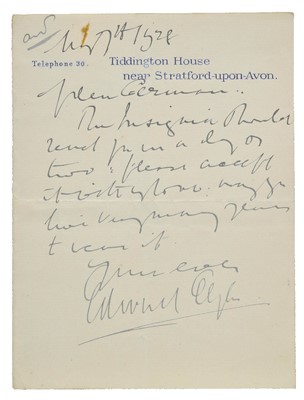 May 7th 1928
Tiddington House
Telephone 30.
near Stratford-upon-Avon.
My dear German:
The Insignia should
reach you in a day or
two: please accept
it with my love: may you
live very many years
to wear it
Yours ever
Edward Elgar